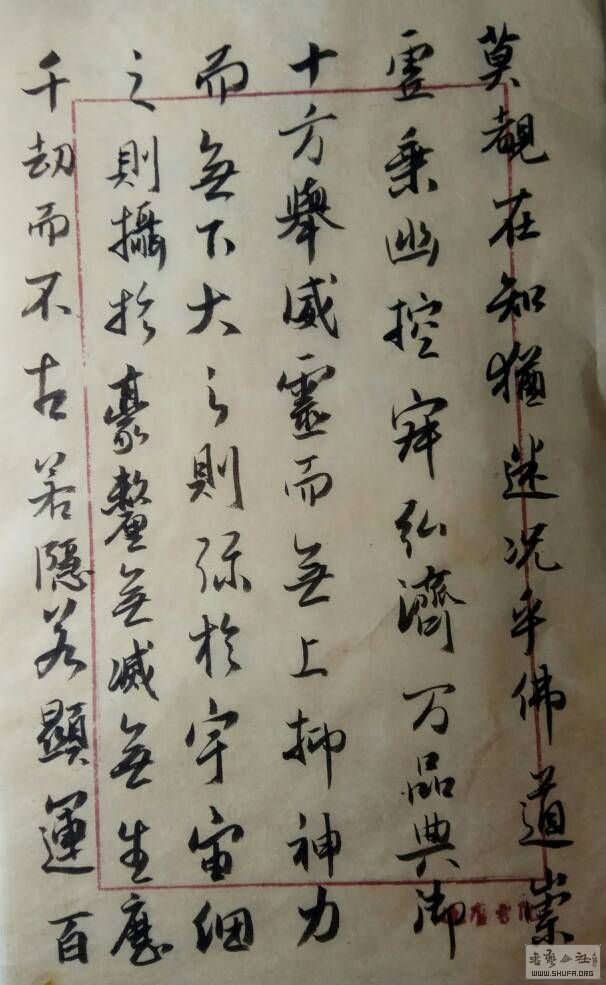 莫覩在知猶迷况乎佛道崇
虛乗幽控寂弘濟万品典御
十方舉威靈而無上抑神力
而無下大之則弥於宇宙細
之則攝於豪釐無滅無生歷
千劫而不古若隱若顯運百
WWW.SHUFA.ORG